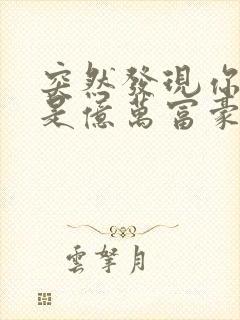 突然發現你
是億萬富豪
雲拏月